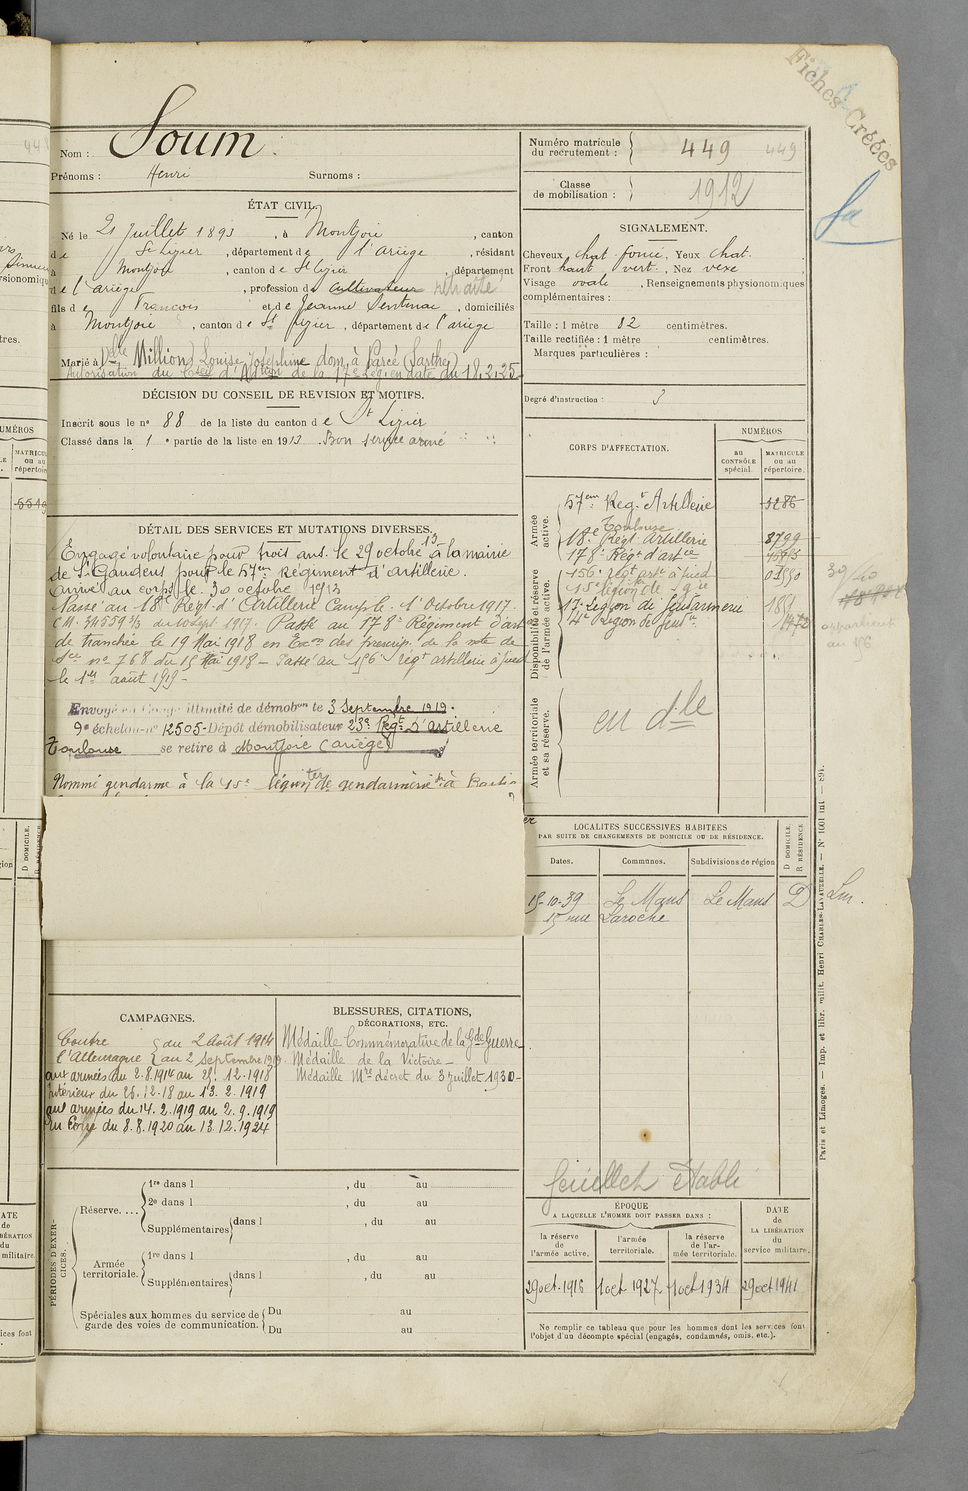 Fiches Créées
Nom : Soum
Prénoms : Henri Surnoms :
Numéro matricule du recrutement : 449 449
Classe de mobilisation : 1912
ÉTAT CIVIL.
Né le 21 Juillet 1893, à Montjoie, canton
de St Lizier, département de l'ariège, résidant
à Montjoie, canton de St Lizier, département
de l'ariège, profession de cultivateur retraité
fils de François et de Jeanne Sentenac, domiciliés
à Montjoie, canton de St Lizier, département de l'ariège
Marié à Dlle Million Louise Joséphine dom. à Parcé (Sarthe)
Autorisation du Conseil d'Adtion de la 17e Légion en date du 18.2.25
SIGNALEMENT.
Cheveux chat. foncé, Yeux chat.
Front haut vert., Nez vexe,
Visage ovale, Renseignements physionomiques
complémentaires :
Taille : 1 mètre 82 centimètres.
Taille rectifiée : 1 mètre centimètres.
Marques particulières :
Degré d'instruction : 3
DÉCISION DU CONSEIL DE REVISION ET MOTIFS.
Inscrit sous le n° 88 de la liste du canton de St Lizier
Classé dans la 1e partie de la liste en 1913 Bon service armé
DÉTAIL DES SERVICES ET MUTATIONS DIVERSES.
Engagé volontaire pour trois ans le 29 octobre 13 à la mairie
de St Gaudens pour le 57em Régiment d'artillerie.
Arrivé au corps le 30 octobre 1913
Passé au 18e Régt d'Artillerie Camp le 1 Octobre 1917.
CM. 34559 2/3 du 10 Sept 1917. Passé au 178e Régiment d'art
de tranchée le 19 Mai 1918 en Exon des prescrip. de la note de
Sce n° 768 du 15 Mai 1918 - Passé au 156 régt artillerie à pied
le 1er août 1919 -
Envoyé en Congé illimité de démobon le 3 Septembre 1919.
9e échelon n° 12505 - Dépôt démobilisateur 23e Régt D'Artillerie
Toulouse se retire à Montjoie (ariège)
Nommé gendarme à la 15e légion ter de gendarmerie à Bastia
CORPS D'AFFECTATION.
NUMÉROS
au CONTRÔLE spécial.
MATRICULE ou au répertoire.
Armée active.
57em Régt Artillerie 3286
Toulouse
18.e Régt Artillerie 8799
178e Régt d'artie
Disponibilité et réserve de l'armée active.
156e régt artie à pied
15e légion
17e Légion de Gendarmerie
4e Légion de Gendie
Armée territoriale et sa réserve.
en dlle
appartient
au 156
LOCALITÉS SUCCESSIVES HABITÉES
PAR SUITE DE CHANGEMENTS DE DOMICILE OU DE RÉSIDENCE.
Dates. Communes. Subdivisions de région
D DOMICILE.
R RÉSIDENCE
15-10-39 Le Mans Le Mans D Lm.
15 rue Laroche
CAMPAGNES.
Contre l'Allemagne { du 2 Août 1914
au 2 Septembre 1919.
aux armées du 2.8.1914 au 25.12.1918
Intérieur du 26.12.18 au 13.2.1919
aux armées du 14.2.1919 au 2.9.1919
En Corse du 8.8.1920 au 13.12.1924
BLESSURES, CITATIONS,
DÉCORATIONS, ETC.
Médaille Commémorative de la Gde Guerre
Médaille de la Victoire -
Médaille Mre décret du 3 juillet 1930 -
Feuillet établi
PÉRIODES D'EXERCICES.
Réserve....
1re dans l , du au
2e dans l , du au
Supplémentaires dans l , du au
Armée territoriale.
1re dans l , du au
Supplémentaires dans l , du au
Spéciales aux hommes du service de garde des voies de communication. Du au
Du au
ÉPOQUE
A LAQUELLE L'HOMME DOIT PASSER DANS :
la réserve de l'armée active.
l'armée territoriale.
la réserve de l'armée territoriale.
DATE de LA LIBÉRATION du service militaire.
29 oct. 1916 1 oct 1927 1 oct 1934 29 oct 1941
Ne remplir ce tableau que pour les hommes dont les services font
l'objet d'un décompte spécial (engagés, condamnés, omis, etc.).
Paris et Limoges. — Imp. et libr. milit. Henri CHARLES-LAVAUZELLE. — N° 1001 ini — 891.